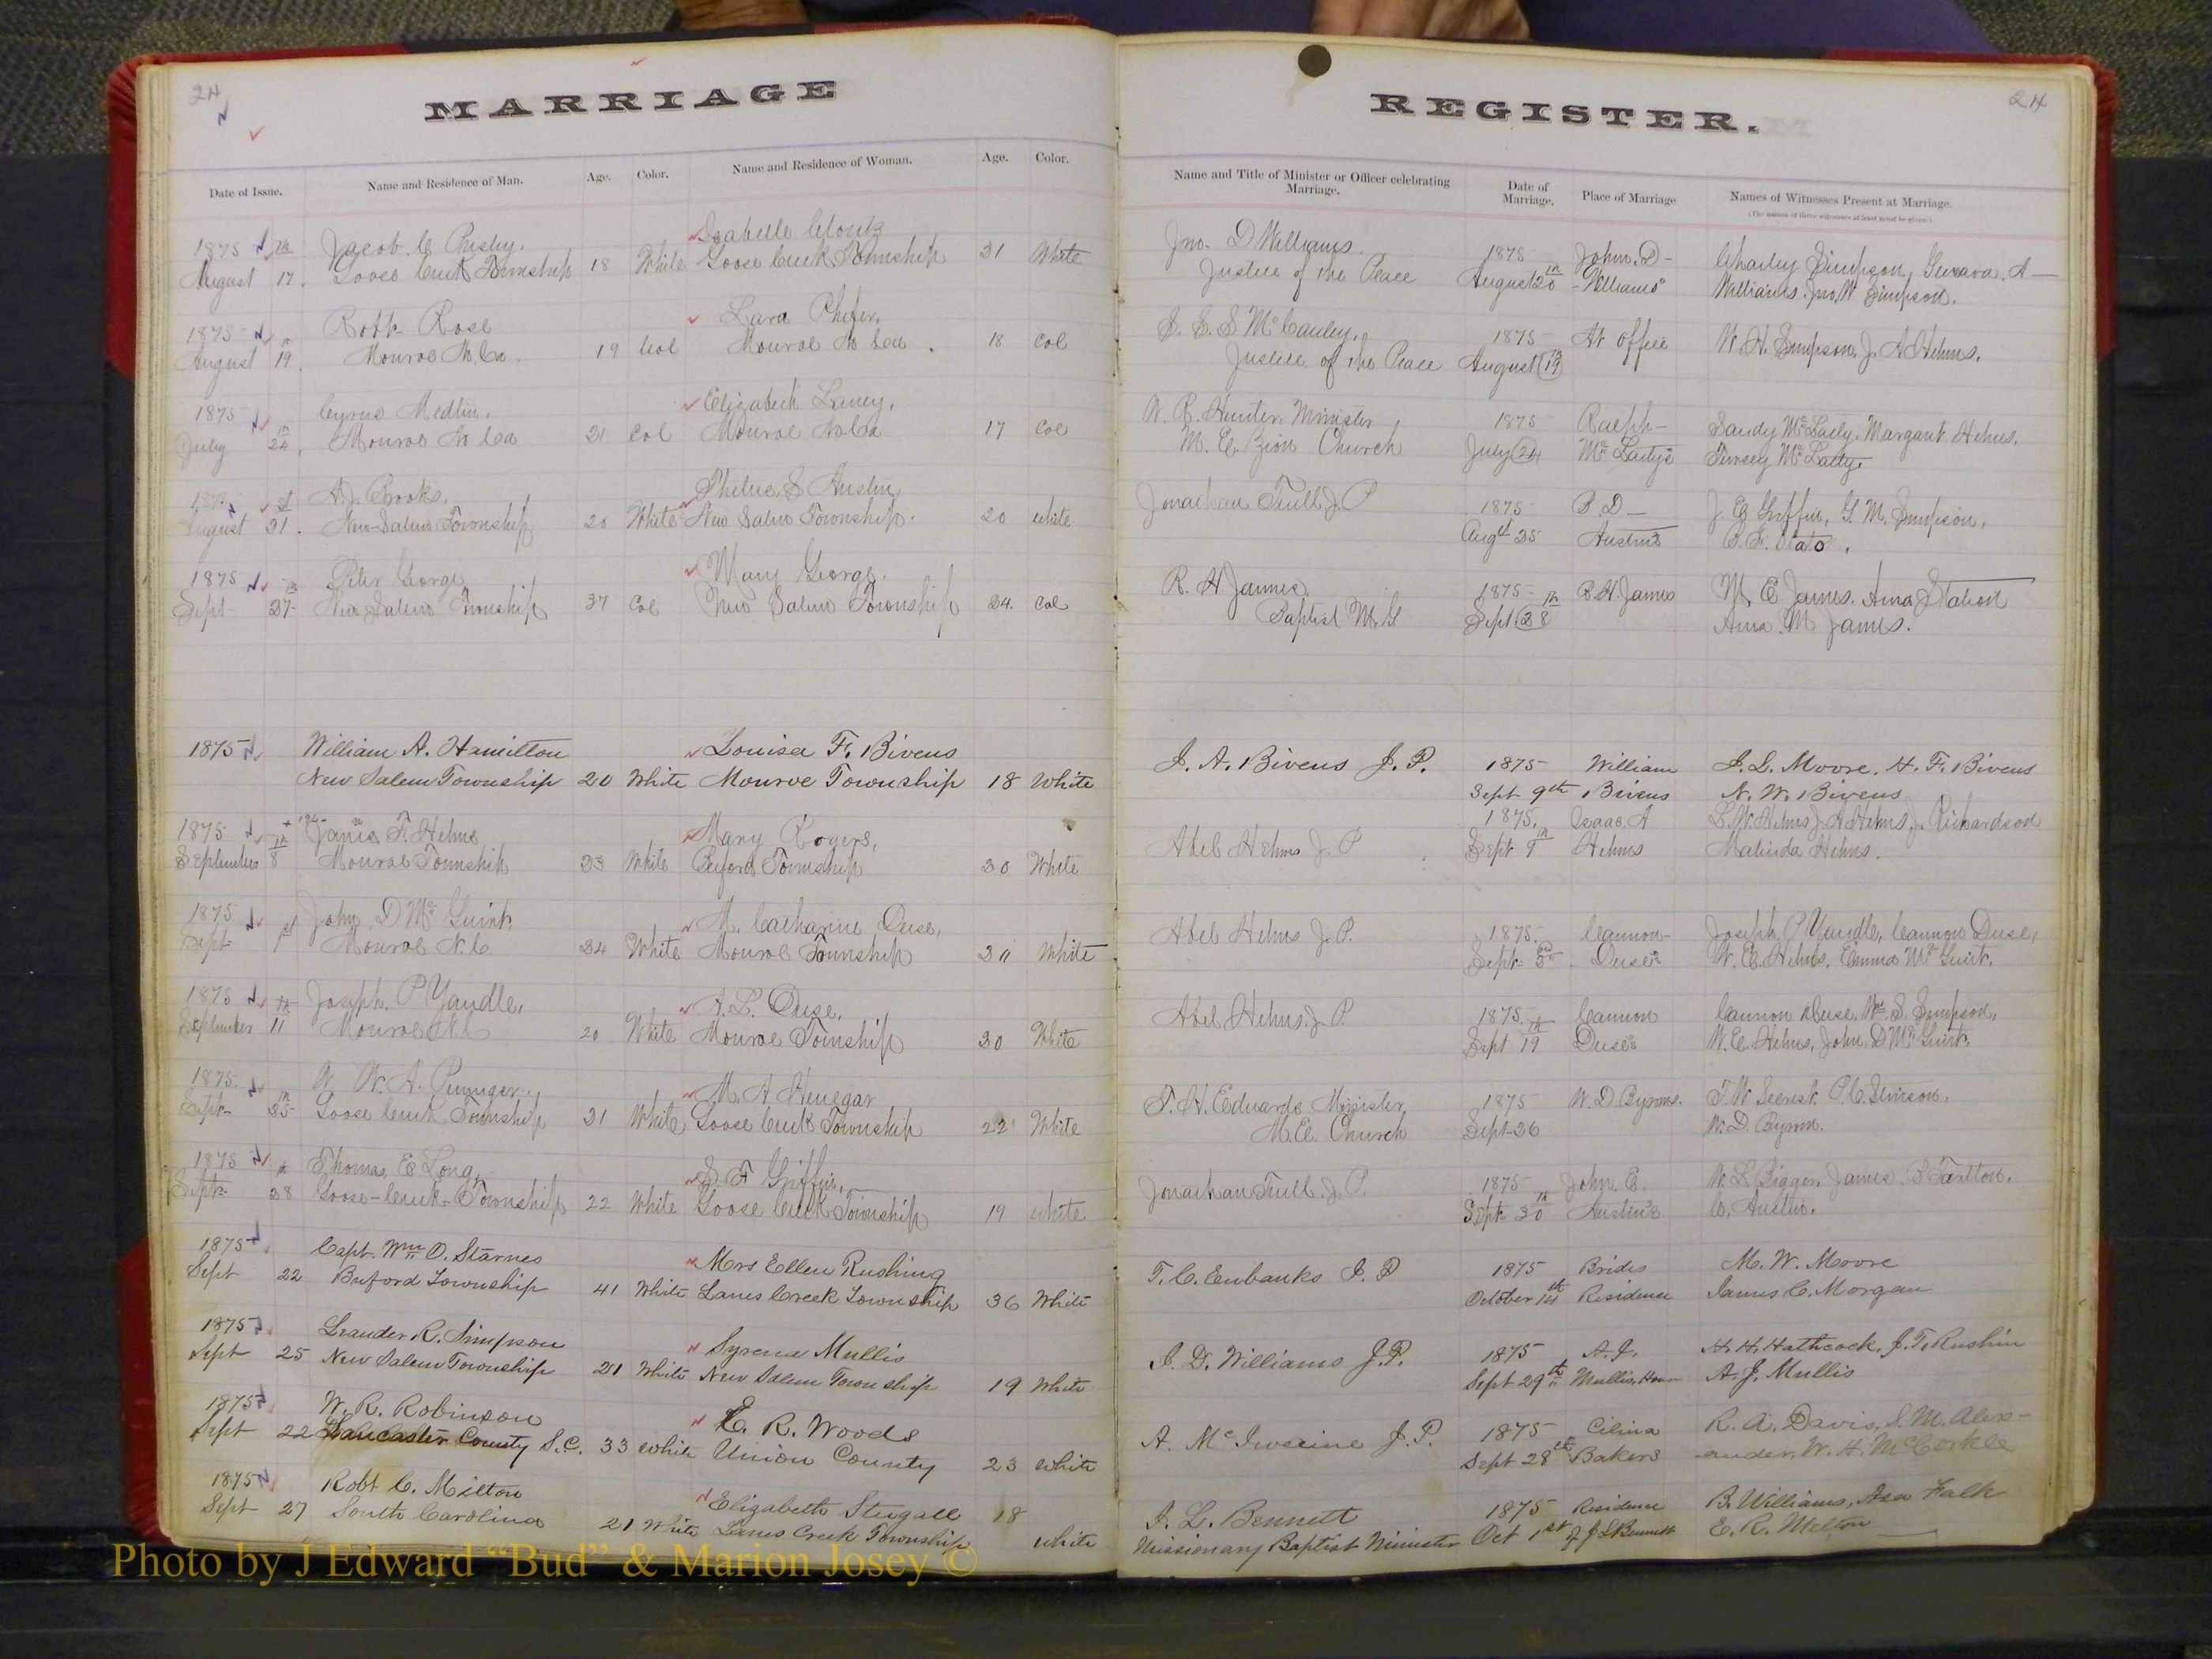 24
24
MARRIAGE REGISTER.
Date of Issue. Name and Residence of Man. Age. Color. Name and Residence of Woman. Age. Color. Name and Title of Minister or Officer celebrating Marriage. Date of Marriage. Place of Marriage Names of Witnesses Present at Marriage.
(The names of three witnesses at least must be given.)
1875 Jacob C Isabelle Jno. D Williams. 1875 John. D - Charley Simpson,
August 17th. Goose Creek Township 18 White Goose Creek Township 31 White Justice of the Peace August 20th Williams' Williams. Jno. W Simpson.
1875 Rose Mc Cauley, 1875 At office W. H. Simpson. J. A Helms.
August 19. Monroe No. Ca. 19 Col Monroe No Ca. 18 Col Justice of the Peace August 19th
1875 Cyrus Medlin. Elizabeth Laney, W. R. Hunter Minister 1875 Ralph - Sandy Margaret Helms.
July 24th. Monroe No Ca 21 Col Monroe No Ca 17 Col M. E. Zion Church July 24
1875 A. J. Brooks. S Austin Jonathan Trull J. P 1875 B D - J. E Griffin, G. M. Simpson,
August 21st. New Salem Township 20 White New Salem Township. 20 white Augst 25 Austin's
1875 Peter George Mary George. R. H James. 1875 R H. James M. E. James. Ama Staton
Sept 27th New Salem Township 37 Col New Salem Township 34. Col Baptist M. G Sept 28th Ama. M James.
1875 William A. Hamilton Louisa F. Bivens J. A. Bivens J. P. 1875 William J. L. Moore. H. F. Bivens
New Salem Township 20 White Monroe Township 18 White Sept 9th Bivens N. W. Bivens
1875 F. Helms Mary Rogers, Abel Helms J. P 1875. Isaac. A L. W. Helms J. A Helms, J. Richardson
September 8th Monroe Township 23 White Buford Township 30 White Sept 9th Helms Malinda Helms.
1875 John. D Mc Guirt. M. Catharine Duse, Abel Helms J. P. 1875. Cannon Joseph. P Yandle, Cannon Duse,
Sept 1st Monroe N. C 34 White Monroe Township White Sept Duse's W. E. Helms. Emma Mc Guirt.
1875 Joseph. P Yandle, A. L. Duse, Abel Helms. J. P. 1875. Cannon Cannon Duse. Wm. S. Simpson.
September 11th Monroe 20 White Monroe Township 30 White Sept 19th Duse's W. E. Helms, John. D Mc Guirt.
1875. W. A. M. A Henegar T. H. Edwards Minister 1875 W. D. Byrum. T. W Secrest. P. C. Stinson.
Sept 25th Goose Creek Township 21 White Goose Creek Township 22 White M. E. Church Sept 26 W. D. Byrum.
1875 Thomas. E Long, S. F Griffin, Jonathan Trull. J. P. 1875 John. E. W. L Bigger. James. S Tarlton.
Sept 28th Goose-Creek-Township 22 White Goose Creek Township 19 white Sept 30th Austin's Austin.
1875 Capt. Wm O. Starnes Mrs Ellen Rushing T. C. Eubanks J. P 1875 Brides M. W. Moore
Sept 22 Buford Township 41 White Lanes Creek Township 36 White October 14th Residence James C. Morgan
1875 Leander R. Simpson Syrena Mullis J. D. Williams J. P. 1875 A. J. H. H. Hathcock, J. T. Rushin
Sept 25 New Salem Township 21 White New Salem Township 19 White Sept 29th Mullis, House A. J. Mullis
1875 W. R. Robinson E. R. Woods A. McIlwaine J. P. 1875 Cilina R. A. Davis, S. M. Alex-
Sept 22 Lancaster County S. C. 33 White Union County 23 white Sept 28th Bakers ander, W. H. McCorkle
1875 Robt C. Milton Elizabeth Stegall 18 J. L. Bennett 1875 Residence B. Williams, Asa Falk
Sept 27 South Carolina 21 White Lanes Creek Township white Missionary Baptist Minister Oct 1st of J L Bennett E. R. Melton
Photo by J Edward "Bud" & Marion Josey ©